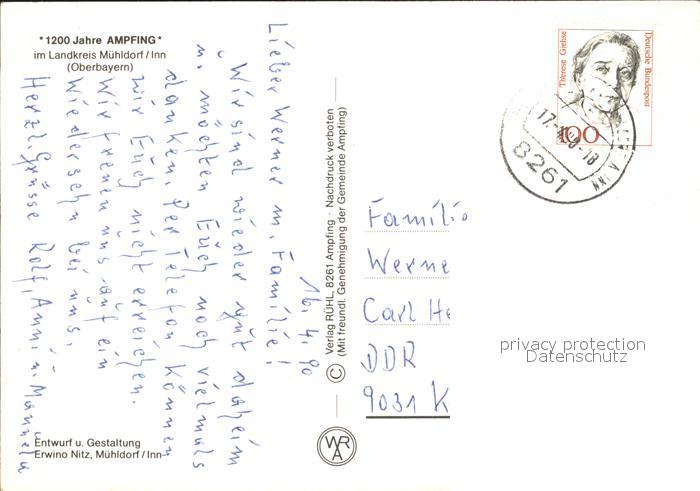 * 1200 Jahre AMPFING *
im Landkreis Mühldorf / Inn
(Oberbayern)
16. 4. 90
Lieber Werner m. Familie!
Wir sind wieder gut daheim
u. möchten Euch noch vielmals
danken. Per Telefon können
wir Euch nicht erreichen.
Wir freuen uns auf ein
Wiedersehn bei uns.
Herzl. Grüsse Rolf, Anni u. Manuela
Entwurf u. Gestaltung
Erwino Nitz, Mühldorf / Inn
© Verlag RÜHL, 8261 Ampfing · Nachdruck verboten
(Mit freundl. Genehmigung der Gemeinde Ampfing)
WRA
Therese Giehse
Deutsche Bundespost
100
-18
8261
A INN
Famili
Werne
Carl He
DDR
9031 K
privacy protection
Datenschutz